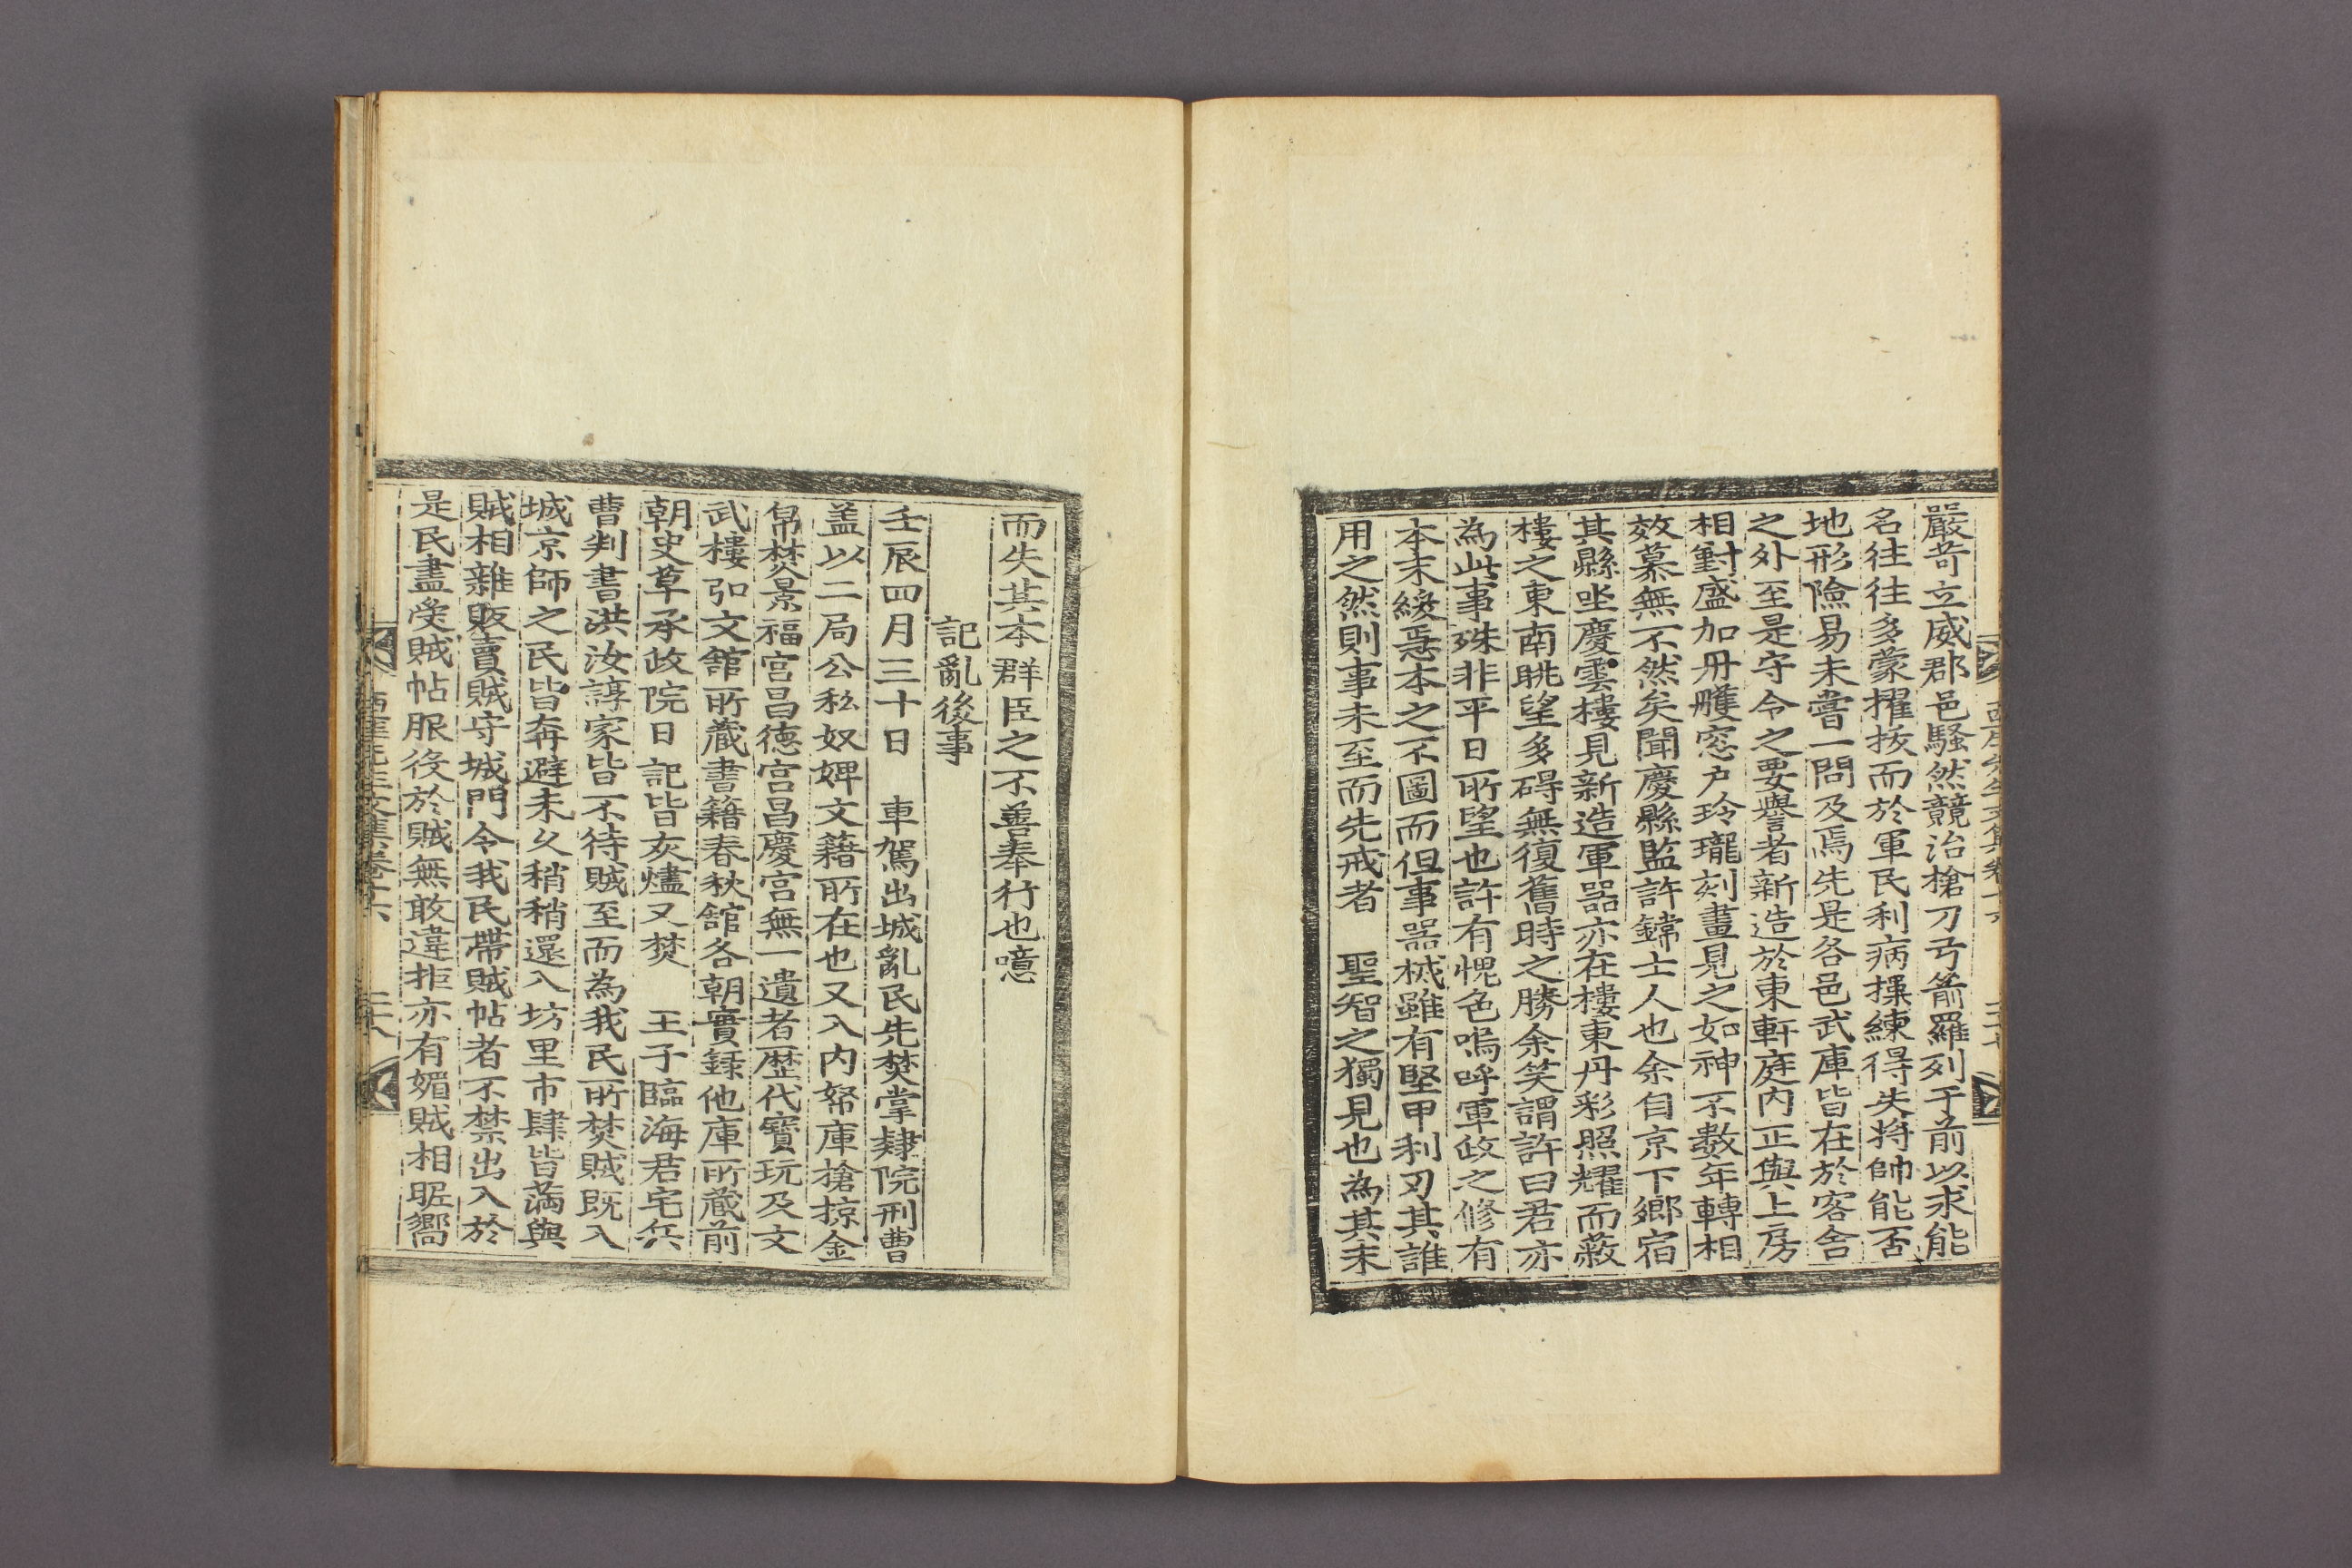 嚴苛立威郡邑騷然競治槍刀弓箭羅列于前以求能
名往往多蒙擢拔而於軍民利病操練得失將帥能否
地形險易未嘗一問及焉先是各邑武庫皆在於客舎
之外至是守令之要譽者新造於東軒庭内正與上房
相對盛加丹雘窓户玲瓏刻畫見之如神不數年轉相
效慕無不然矣聞慶縣監許鏛士人也余自京下鄉宿
其縣坐慶雲樓見新造軍器亦在樓東丹彩照耀而蔽
樓之東南眺望多碍無復舊時之勝余笑謂許曰君亦
為此事殊非平日所望也許有愧色嗚呼軍政之修有
本末緩急本之不圖而但事器械雖有堅甲利刃其誰
用之然則事未至而先戒者 聖智之獨見也為其末
而失其本群臣之不善奉行也噫
記亂後事
壬辰四月三十日 車駕出城亂民先焚掌隷院刑曹
盖以二局公私奴婢文籍所在也又入内帑庫搶掠金
帛焚景福宮昌徳宮昌慶宮無一遺者歷代寶玩及文
武樓弘文舘所蔵書籍春秋舘各朝實録他庫所蔵前
朝史草承政院日記皆灰燼又焚 王子臨海君宅兵
曹判書洪汝諄家皆不待賊至而為我民所焚賊既入
城京師之民皆奔避未久稍稍還入坊里市肆皆滿與
賊相雜販賣賊守城門令我民帶賊帖者不禁出入於
是民盡受賊帖服役於賊無敢違拒亦有媚賊相昵嚮
西厓先生文集卷十六 二十八